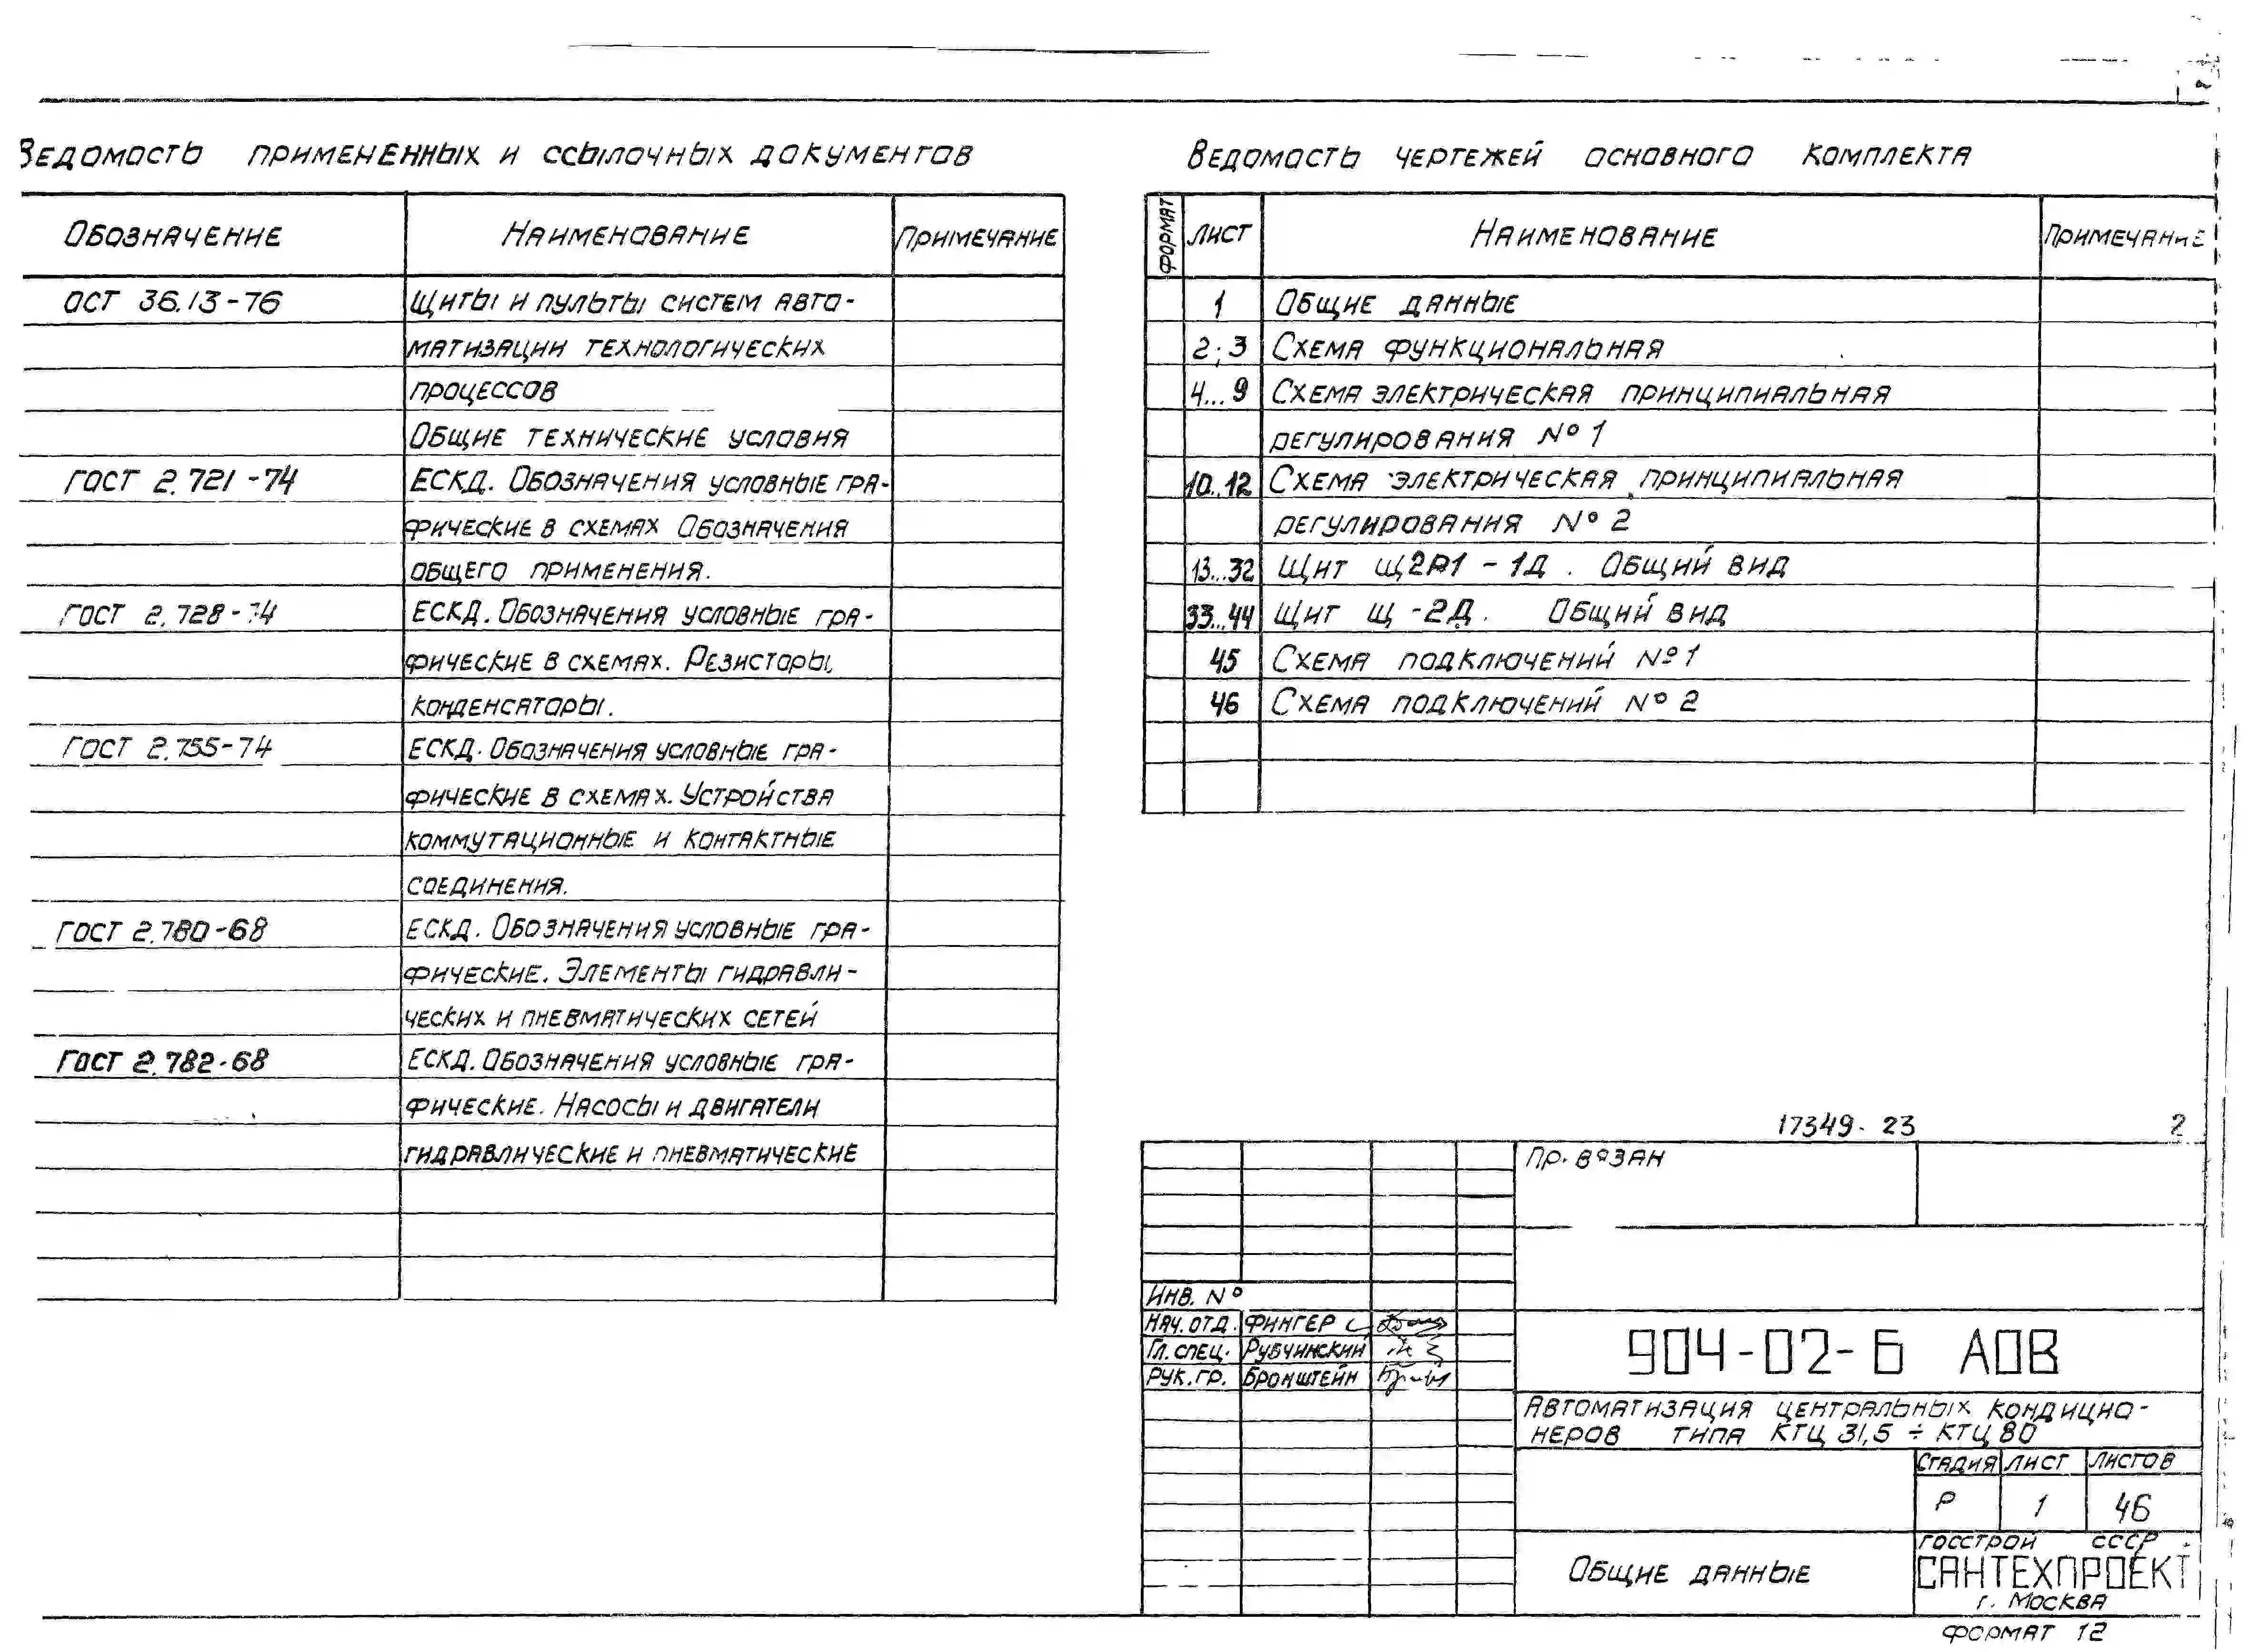 Ведомость примененных и ссылочных документов
Обозначение Наименование Примечание
ОСТ 36.13-76 Щиты и пульты систем авто-
матизации технологических
процессов
Общие технические условия
ГОСТ 2.721-74 ЕСКД. Обозначения условные гра-
фические в схемах Обозначения
общего применения.
ГОСТ 2.728-74 ЕСКД. Обозначения условные гра-
фические в схемах. Резисторы,
конденсаторы.
ГОСТ 2.755-74 ЕСКД. Обозначения условные гра-
фические в схемах. Устройства
коммутационные и контактные
соединения.
ГОСТ 2.780-68 ЕСКД. Обозначения условные гра-
фические. Элементы гидравли-
ческих и пневматических сетей
ГОСТ 2.782-68 ЕСКД. Обозначения условные гра-
фические. Насосы и двигатели
гидравлические и пневматические
Ведомость чертежей основного комплекта
Формат Лист Наименование Примечание
1 Общие данные
2; 3 Схема функциональная
4...9 Схема электрическая принципиальная
регулирования №1
10..12 Схема электрическая принципиальная
регулирования №2
13...32 Щит Щ2Р1-1Д. Общий вид
33...44 Щит Щ-2Д. Общий вид
45 Схема подключений №1
46 Схема подключений №2
17349-23 2
Привязан
Инв. №
Нач. отд. Фингер
Гл. спец. Рубчинский
Рук. гр. Бронштейн
904-02-Б АОВ
Автоматизация центральных кондицио-
неров типа КТЦ 31,5 ÷ КТЦ 80
Стадия Лист Листов
Р 1 46
Общие данные
Госстрой СССР
САНТЕХПРОЕКТ
г. Москва
Формат 12